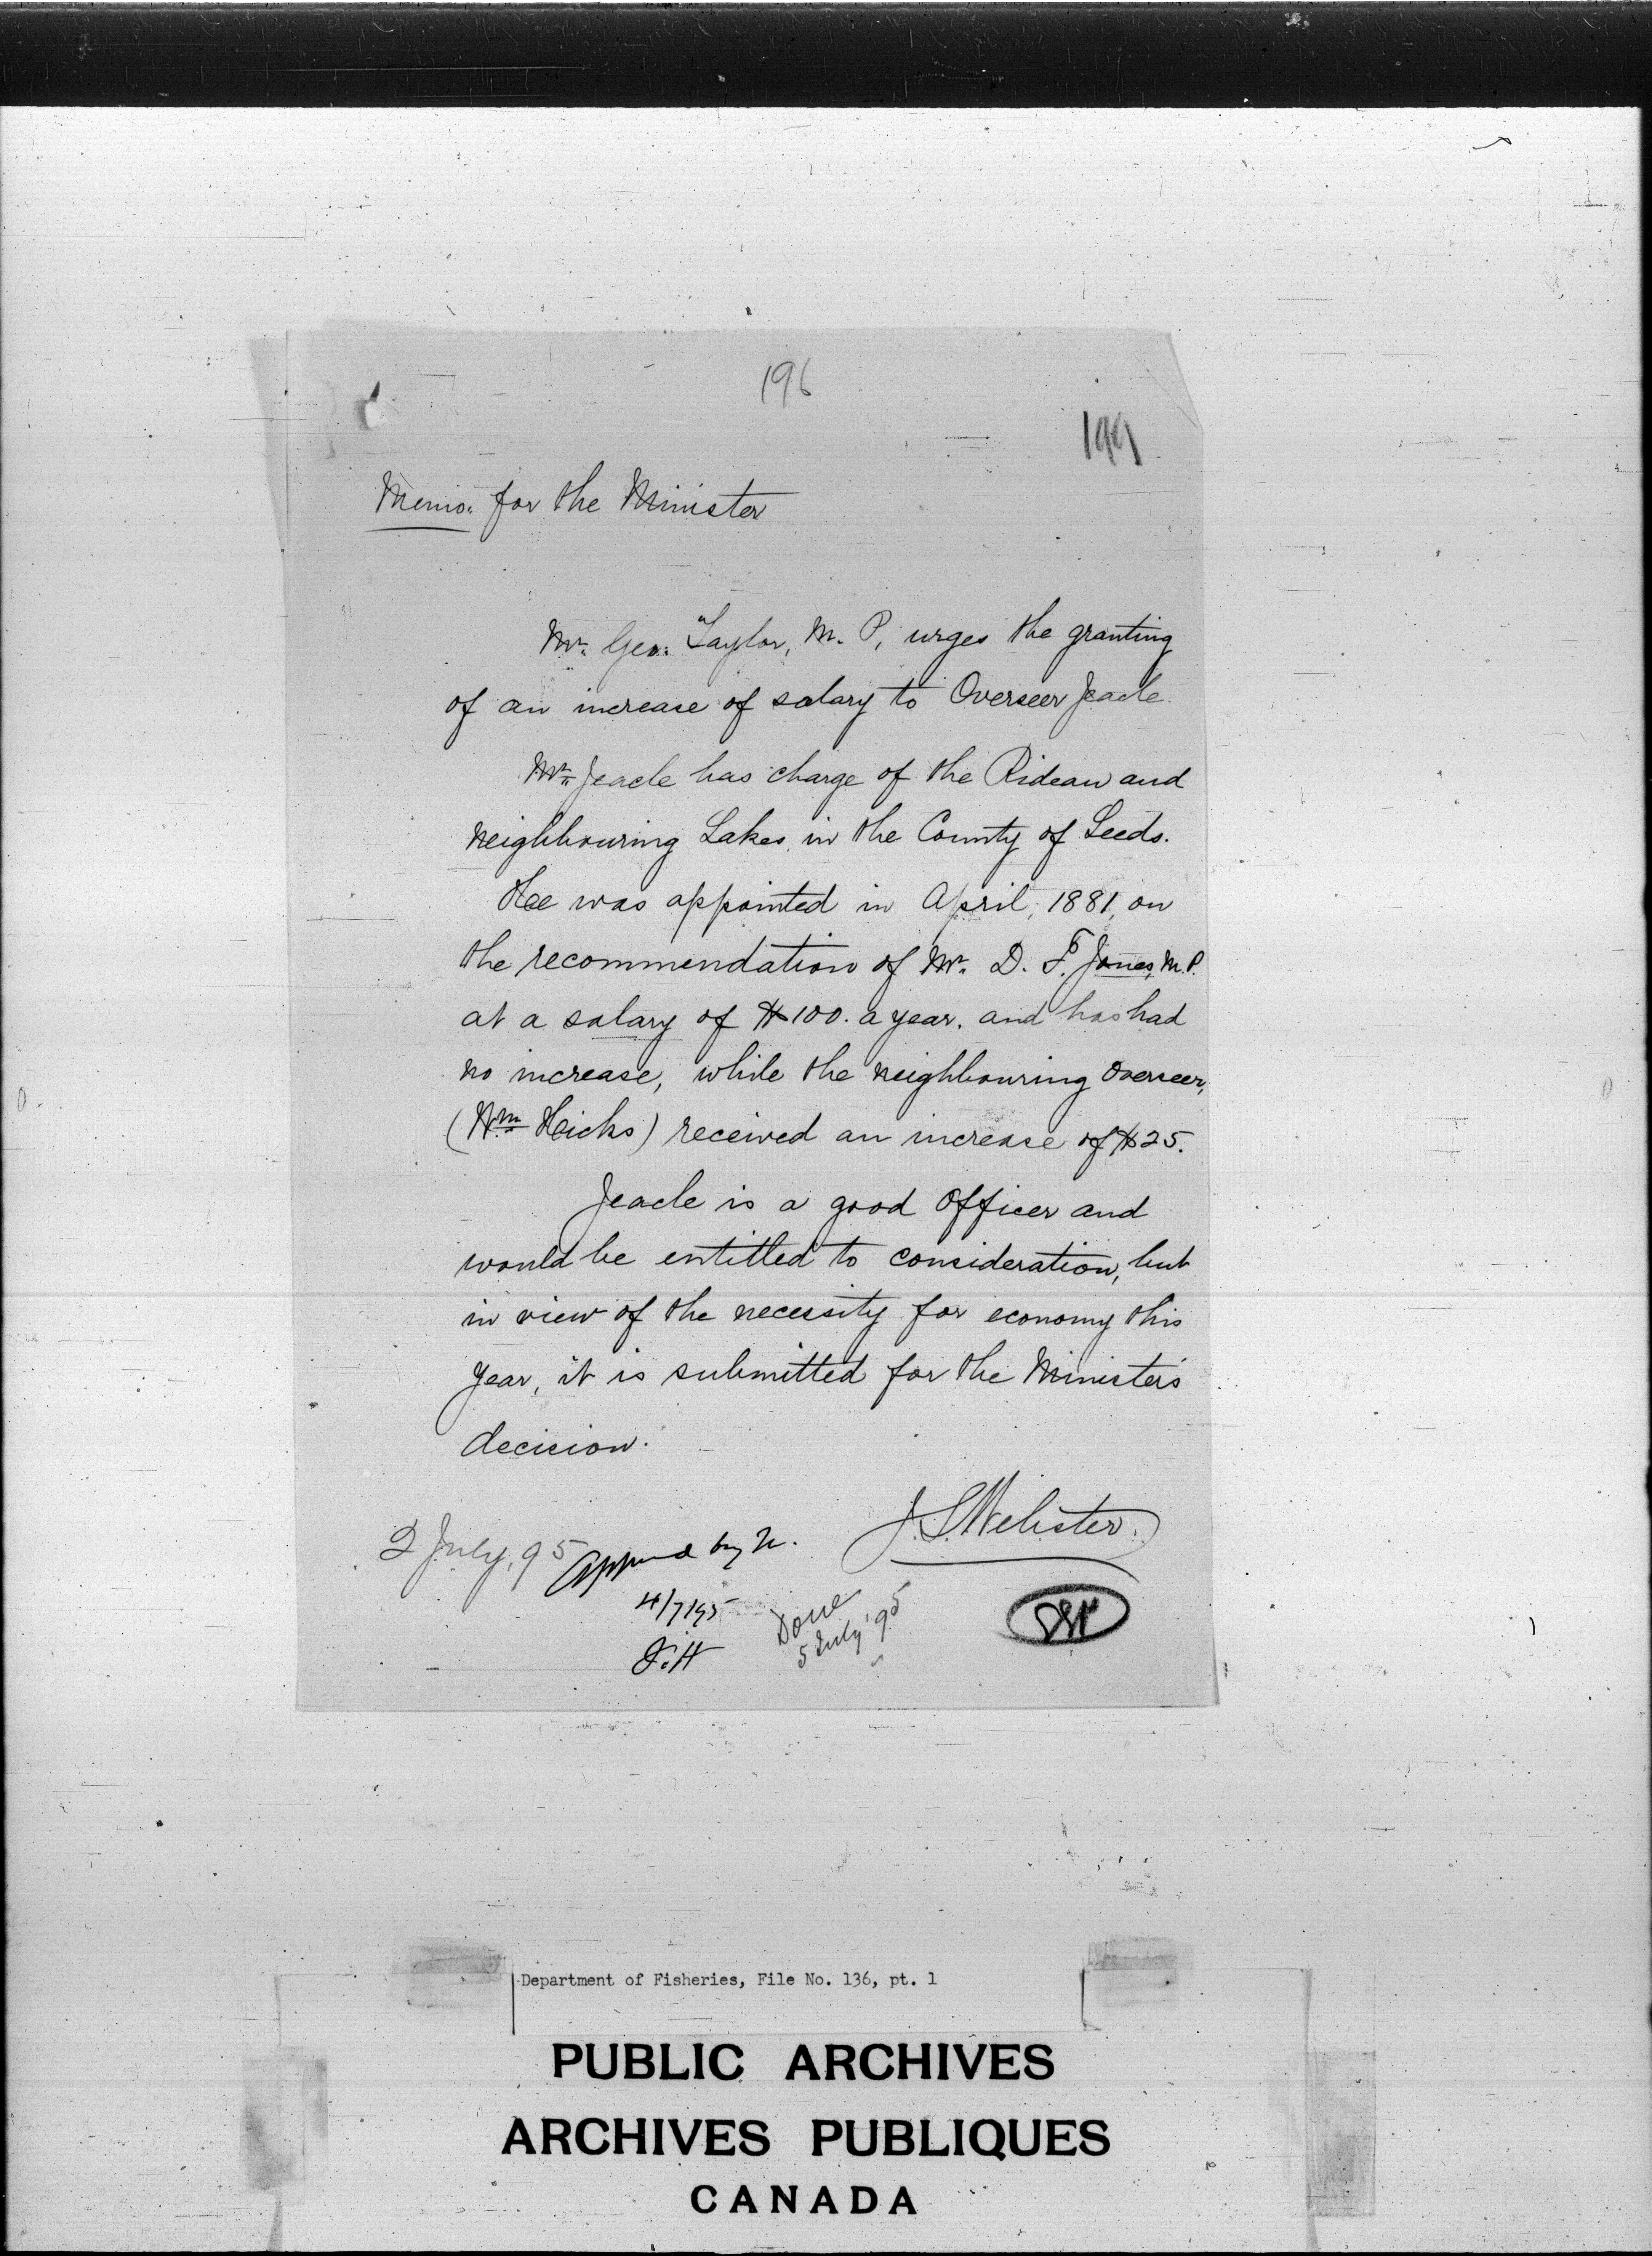 196
199
Memo. for the Minister
Mr. Geo. Taylor, M. P, urges the granting
of an increase of salary to Overseer Jeacle.
Mr. Jeacle has charge of the Rideau and
neighbouring Lakes in the County of Leeds.
He was appointed in April, 1881, on
the recommendation of Mr. D. F. Jones, M.P.
at a salary of $100. a year. and has had
no increase, while the neighbouring Overseer,
(Wm. Hicks) received an increase of $25.
Jeacle is a good Officer and
would be entitled to consideration, but
in view of the necessity for economy this
year, it is submitted for the Minister's
decision.
J. S. Webster.
2 July, 95
Approved by
4/7/95
J.H
Done
5 July '95
Department of Fisheries, File No. 136, pt. 1
PUBLIC ARCHIVES
ARCHIVES PUBLIQUES
CANADA